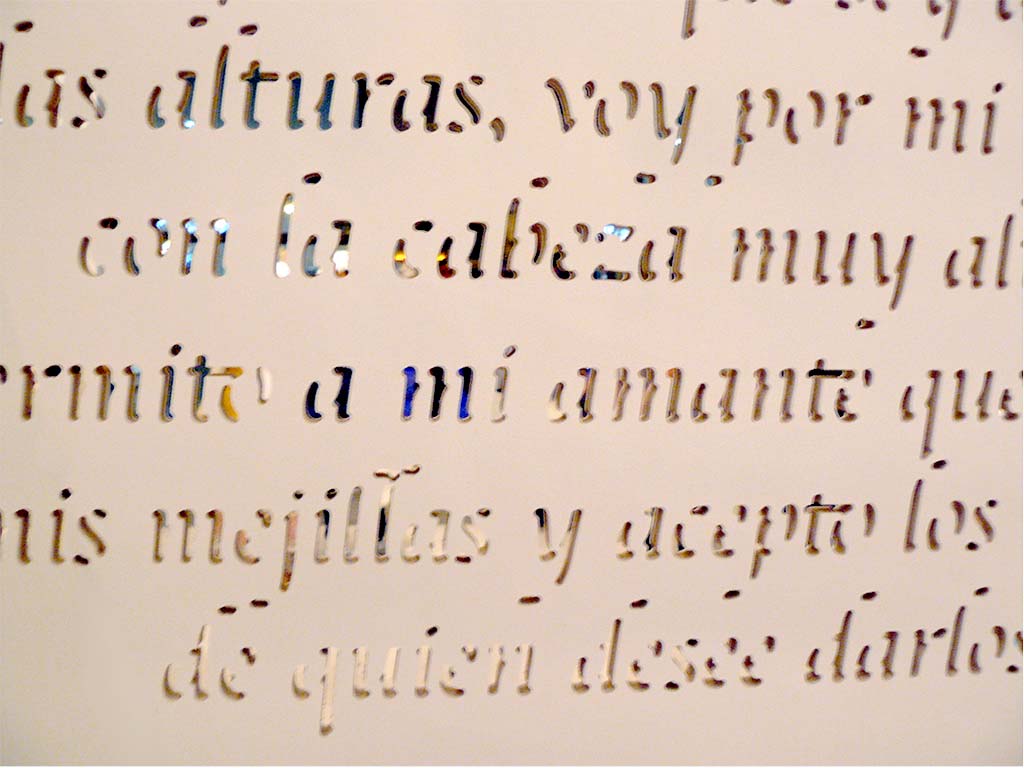 las alturas, voy por mi
con la cabeza muy al
rmito a mi amante que
mis mejillas y acepto los
de quien desee darlos